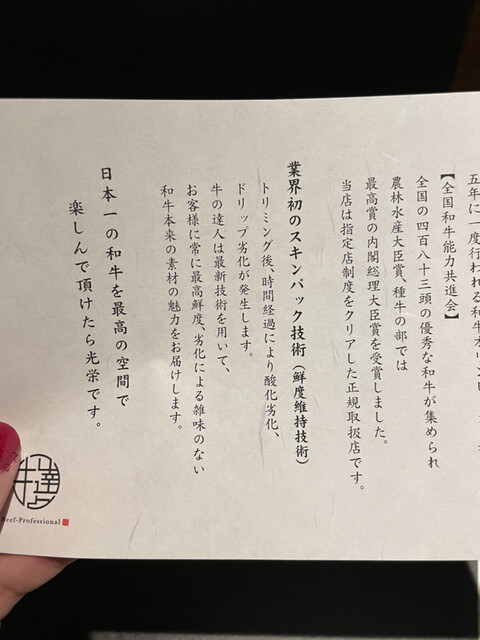 五年に一度行われる和牛オリンピ
【全国和牛能力共進会】
全国の四百八十三頭の優秀な和牛が集められ
農林水産大臣賞、種牛の部では
最高賞の内閣総理大臣賞を受賞しました。
当店は指定店制度をクリアした正規取扱店です。
業界初のスキンパック技術（鮮度維持技術）
トリミング後、時間経過により酸化劣化、
ドリップ劣化が発生します。
牛の達人は最新技術を用いて、
お客様に常に最高鮮度、劣化による雑味のない
和牛本来の素材の魅力をお届けします。
日本一の和牛を最高の空間で
楽しんで頂けたら光栄です。
牛達
Beef-Professional